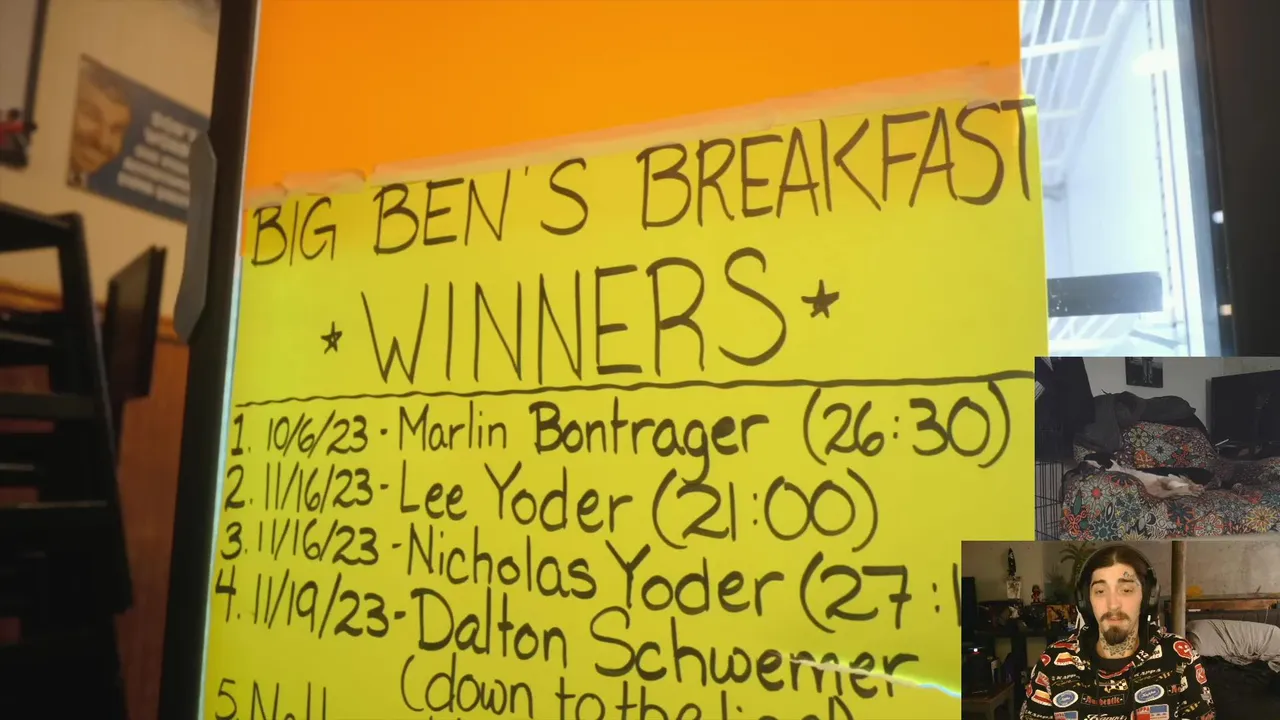 BIG BEN'S BREAKFAST
★ WINNERS ★
1. 10/6/23 - Marlin Bontrager (26:30)
2. 11/16/23 - Lee Yoder (21:00)
3. 11/16/23 - Nicholas Yoder (27:1
4. 11/19/23 - Dalton Schwemer
(down to the
5.